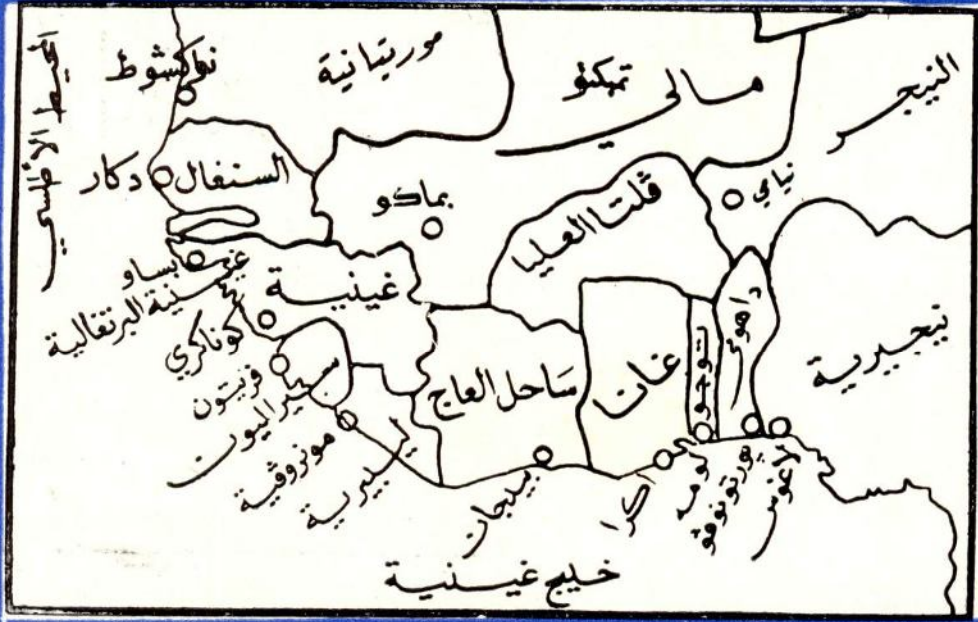 المحيط الأطلسي
نواكشوط
موريتانية
تمبكتو
مالي
النيجر
دكار
السنغال
بماكو
ڤلتا العليا
نيامي
بساو
غينية البرتغالية
غينية
كوناكري
فريتون
سيراليون
مونروڤية
ليبيرية
ساحل العاج
غانا
توجو
داهومي
نيجيرية
بيدجان
أكرا
لومه
پورتونوڤو
لاغوس
خليج غينية